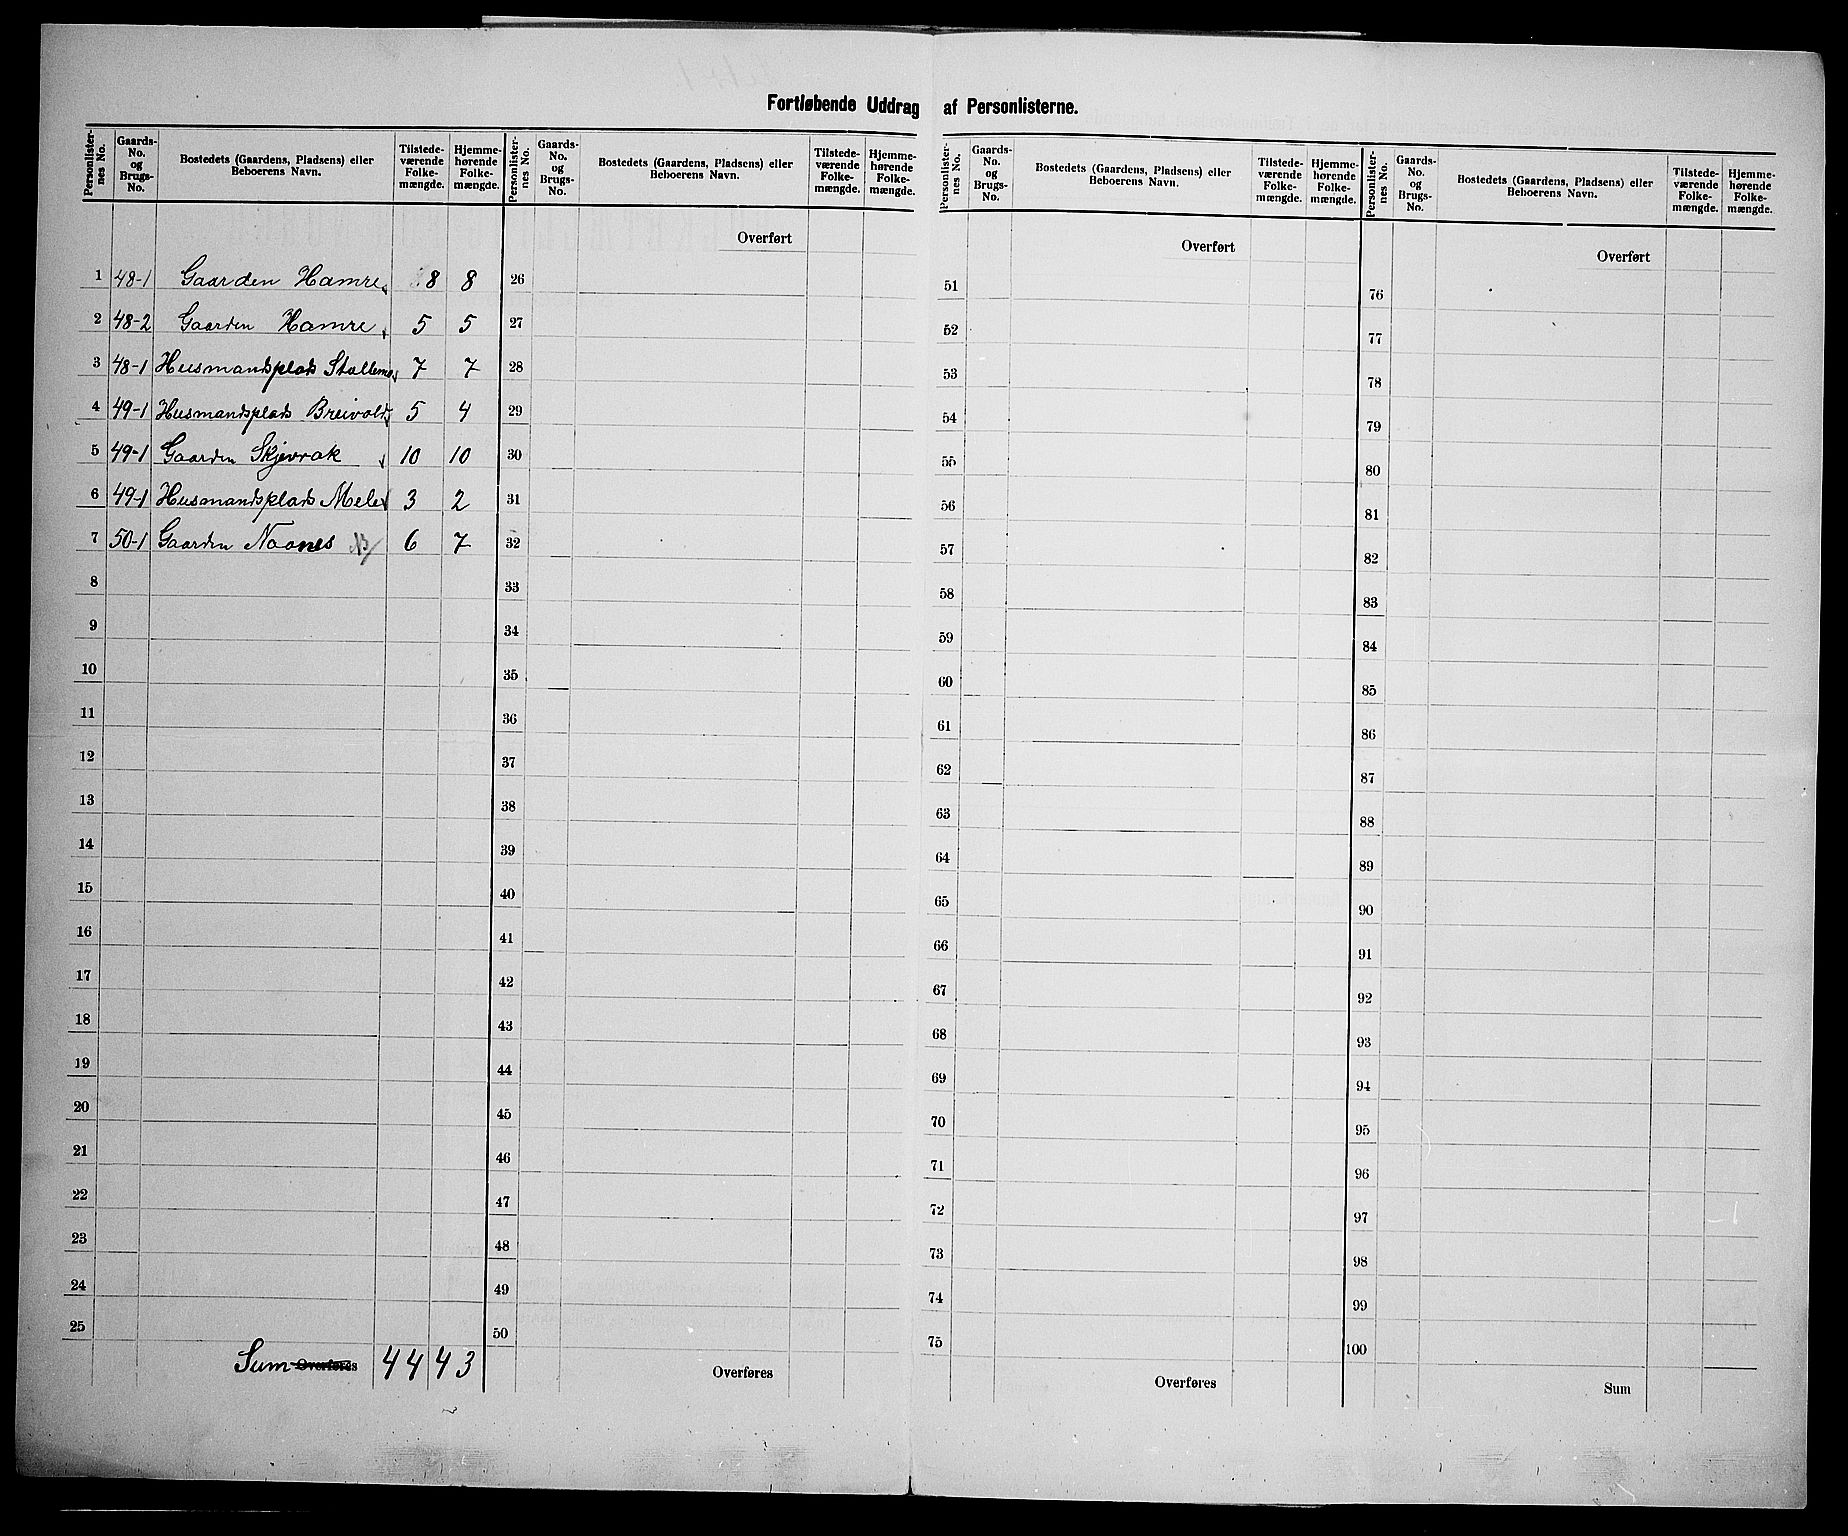 Fortløbende Uddrag af Personlisterne.
Personlister-nes No. Gaards-No. og Brugs-No. Bostedets (Gaardens, Pladsens) eller Beboerens Navn. Tilstede-værende Folke-mængde. Hjemme-hørende Folke-mængde.
Personlister-nes No. Gaards-No. og Brugs-No. Bostedets (Gaardens, Pladsens) eller Beboerens Navn. Tilstede-værende Folke-mængde. Hjemme-hørende Folke-mængde.
Personlister-nes No. Gaards-No. og Brugs-No. Bostedets (Gaardens, Pladsens) eller Beboerens Navn. Tilstede-værende Folke-mængde. Hjemme-hørende Folke-mængde.
Personlister-nes No. Gaards-No. og Brugs-No. Bostedets (Gaardens, Pladsens) eller Beboerens Navn. Tilstede-værende Folke-mængde. Hjemme-hørende Folke-mængde.
Overført Overført Overført
1 48-1 Gaarden Hamre 8 8 26 51 76
2 48-2 Gaarden Hamre 5 5 27 52 77
3 48-1 Husmandsplads 7 7 28 53 78
4 49-1 Husmandsplads Breivold 5 4 29 54 79
5 49-1 Gaarden Skjevrak 10 10 30 55 80
6 49-1 Husmandsplads Mele 3 2 31 56 81
7 50-1 Gaarden Naanes 6 7 32 57 82
8 33 58 83
9 34 59 84
10 35 60 85
11 36 61 86
12 37 62 87
13 38 63 88
14 39 64 89
15 40 65 90
16 41 66 91
17 42 67 92
18 43 68 93
19 44 69 94
20 45 70 95
21 46 71 96
22 47 72 97
23 48 73 98
24 49 74 99
25 50 75 100
Sum Overføres 44 43 Overføres Overføres Sum